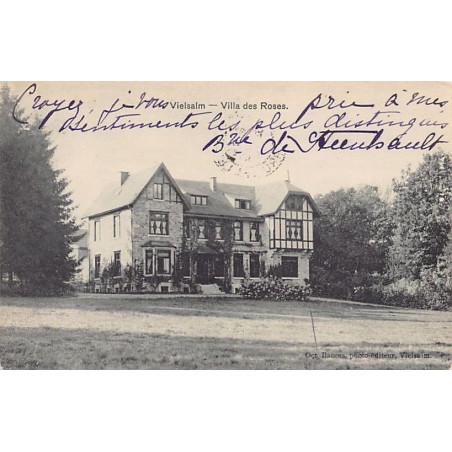 Croyez, je vous prie à mes
Vielsalm — Villa des Roses.
sentiments les plus distingués
Bne de
Oct. photo-éditeur, Vielsalm.